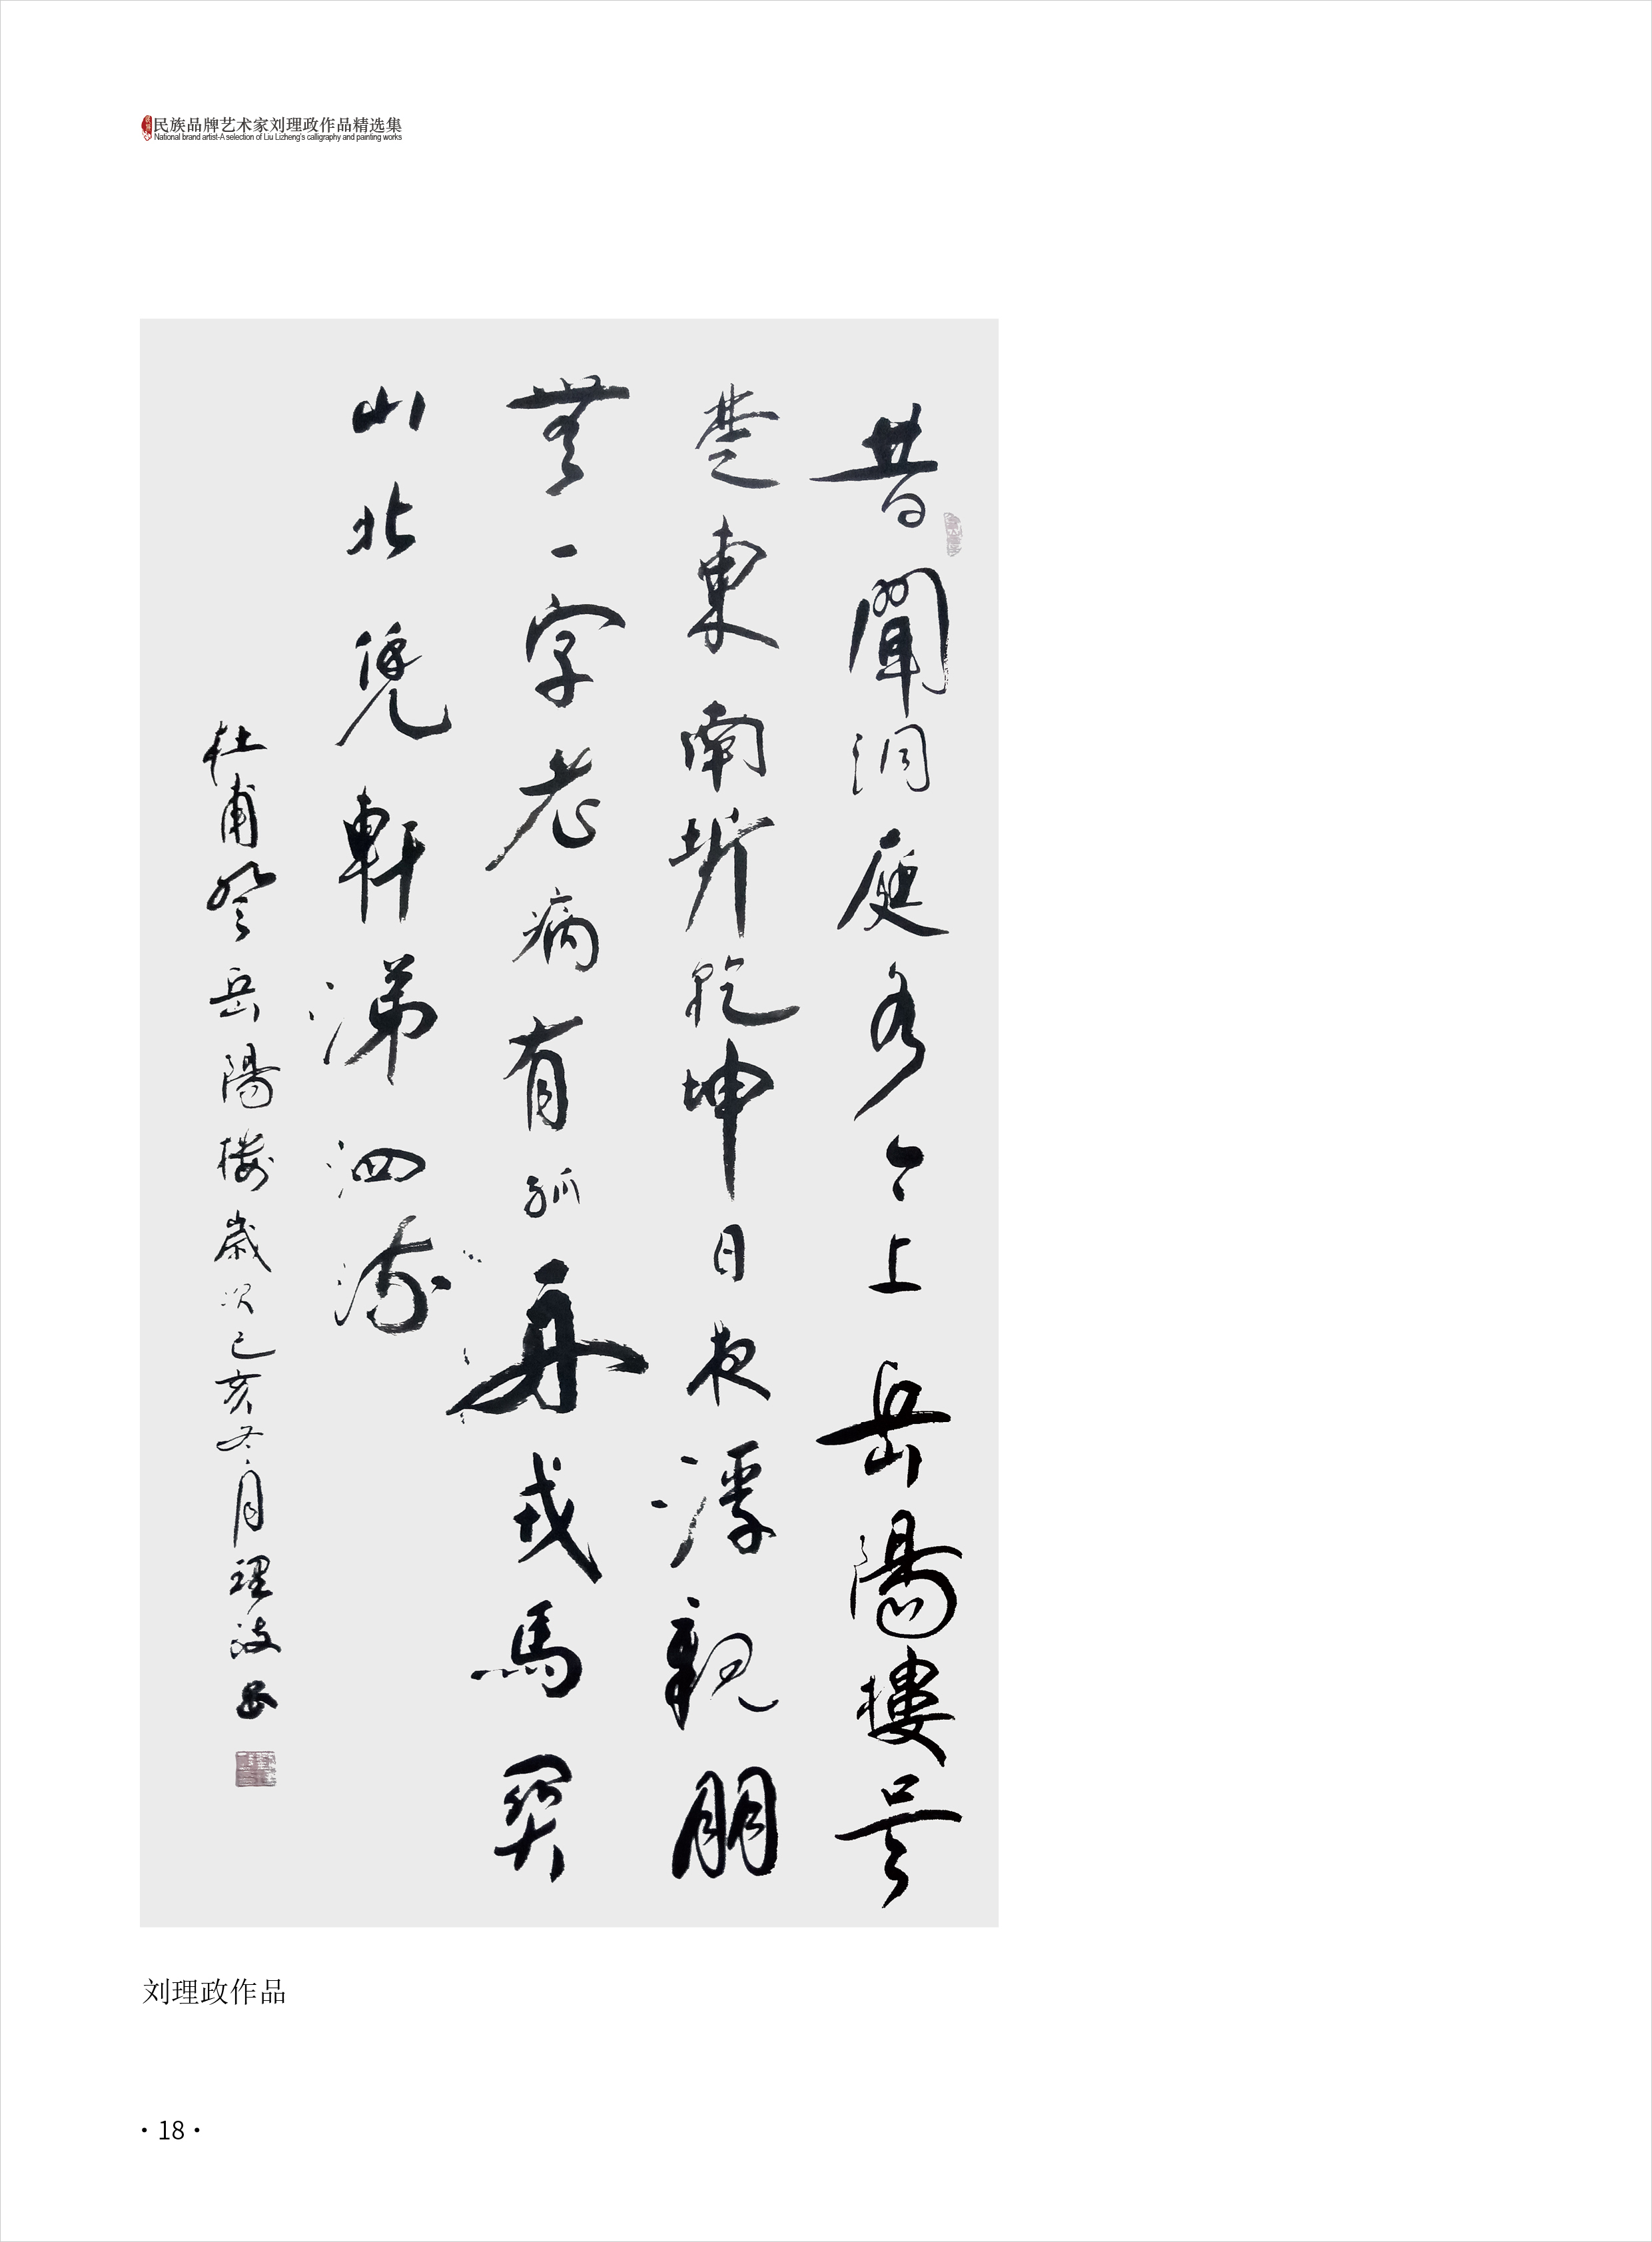 民族品牌艺术家刘理政作品精选集
National brand artist-A selection of Liu Lizheng's calligraphy and painting works
昔聞洞庭水今上岳陽樓吴
楚東南坼乾坤日夜浮親朋
無一字老病有孤舟戎馬關
山北凭軒涕泗流
杜甫登岳陽樓歲次己亥冬月理政書
刘理政作品
· 18 ·